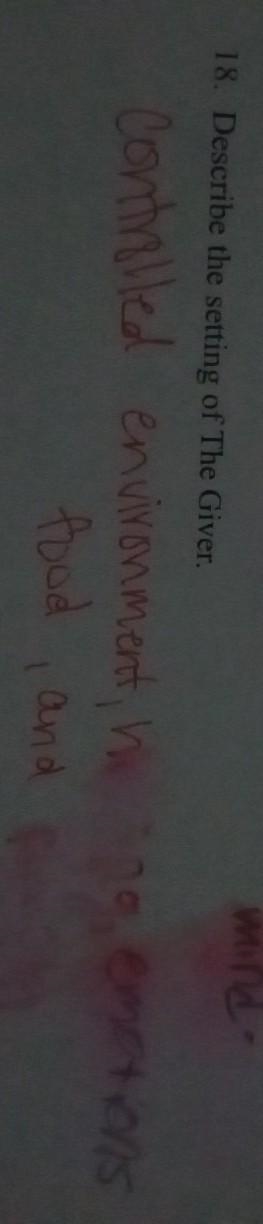 mind.
18. Describe the setting of The Giver.
Controlled environment, no emotions
food, and